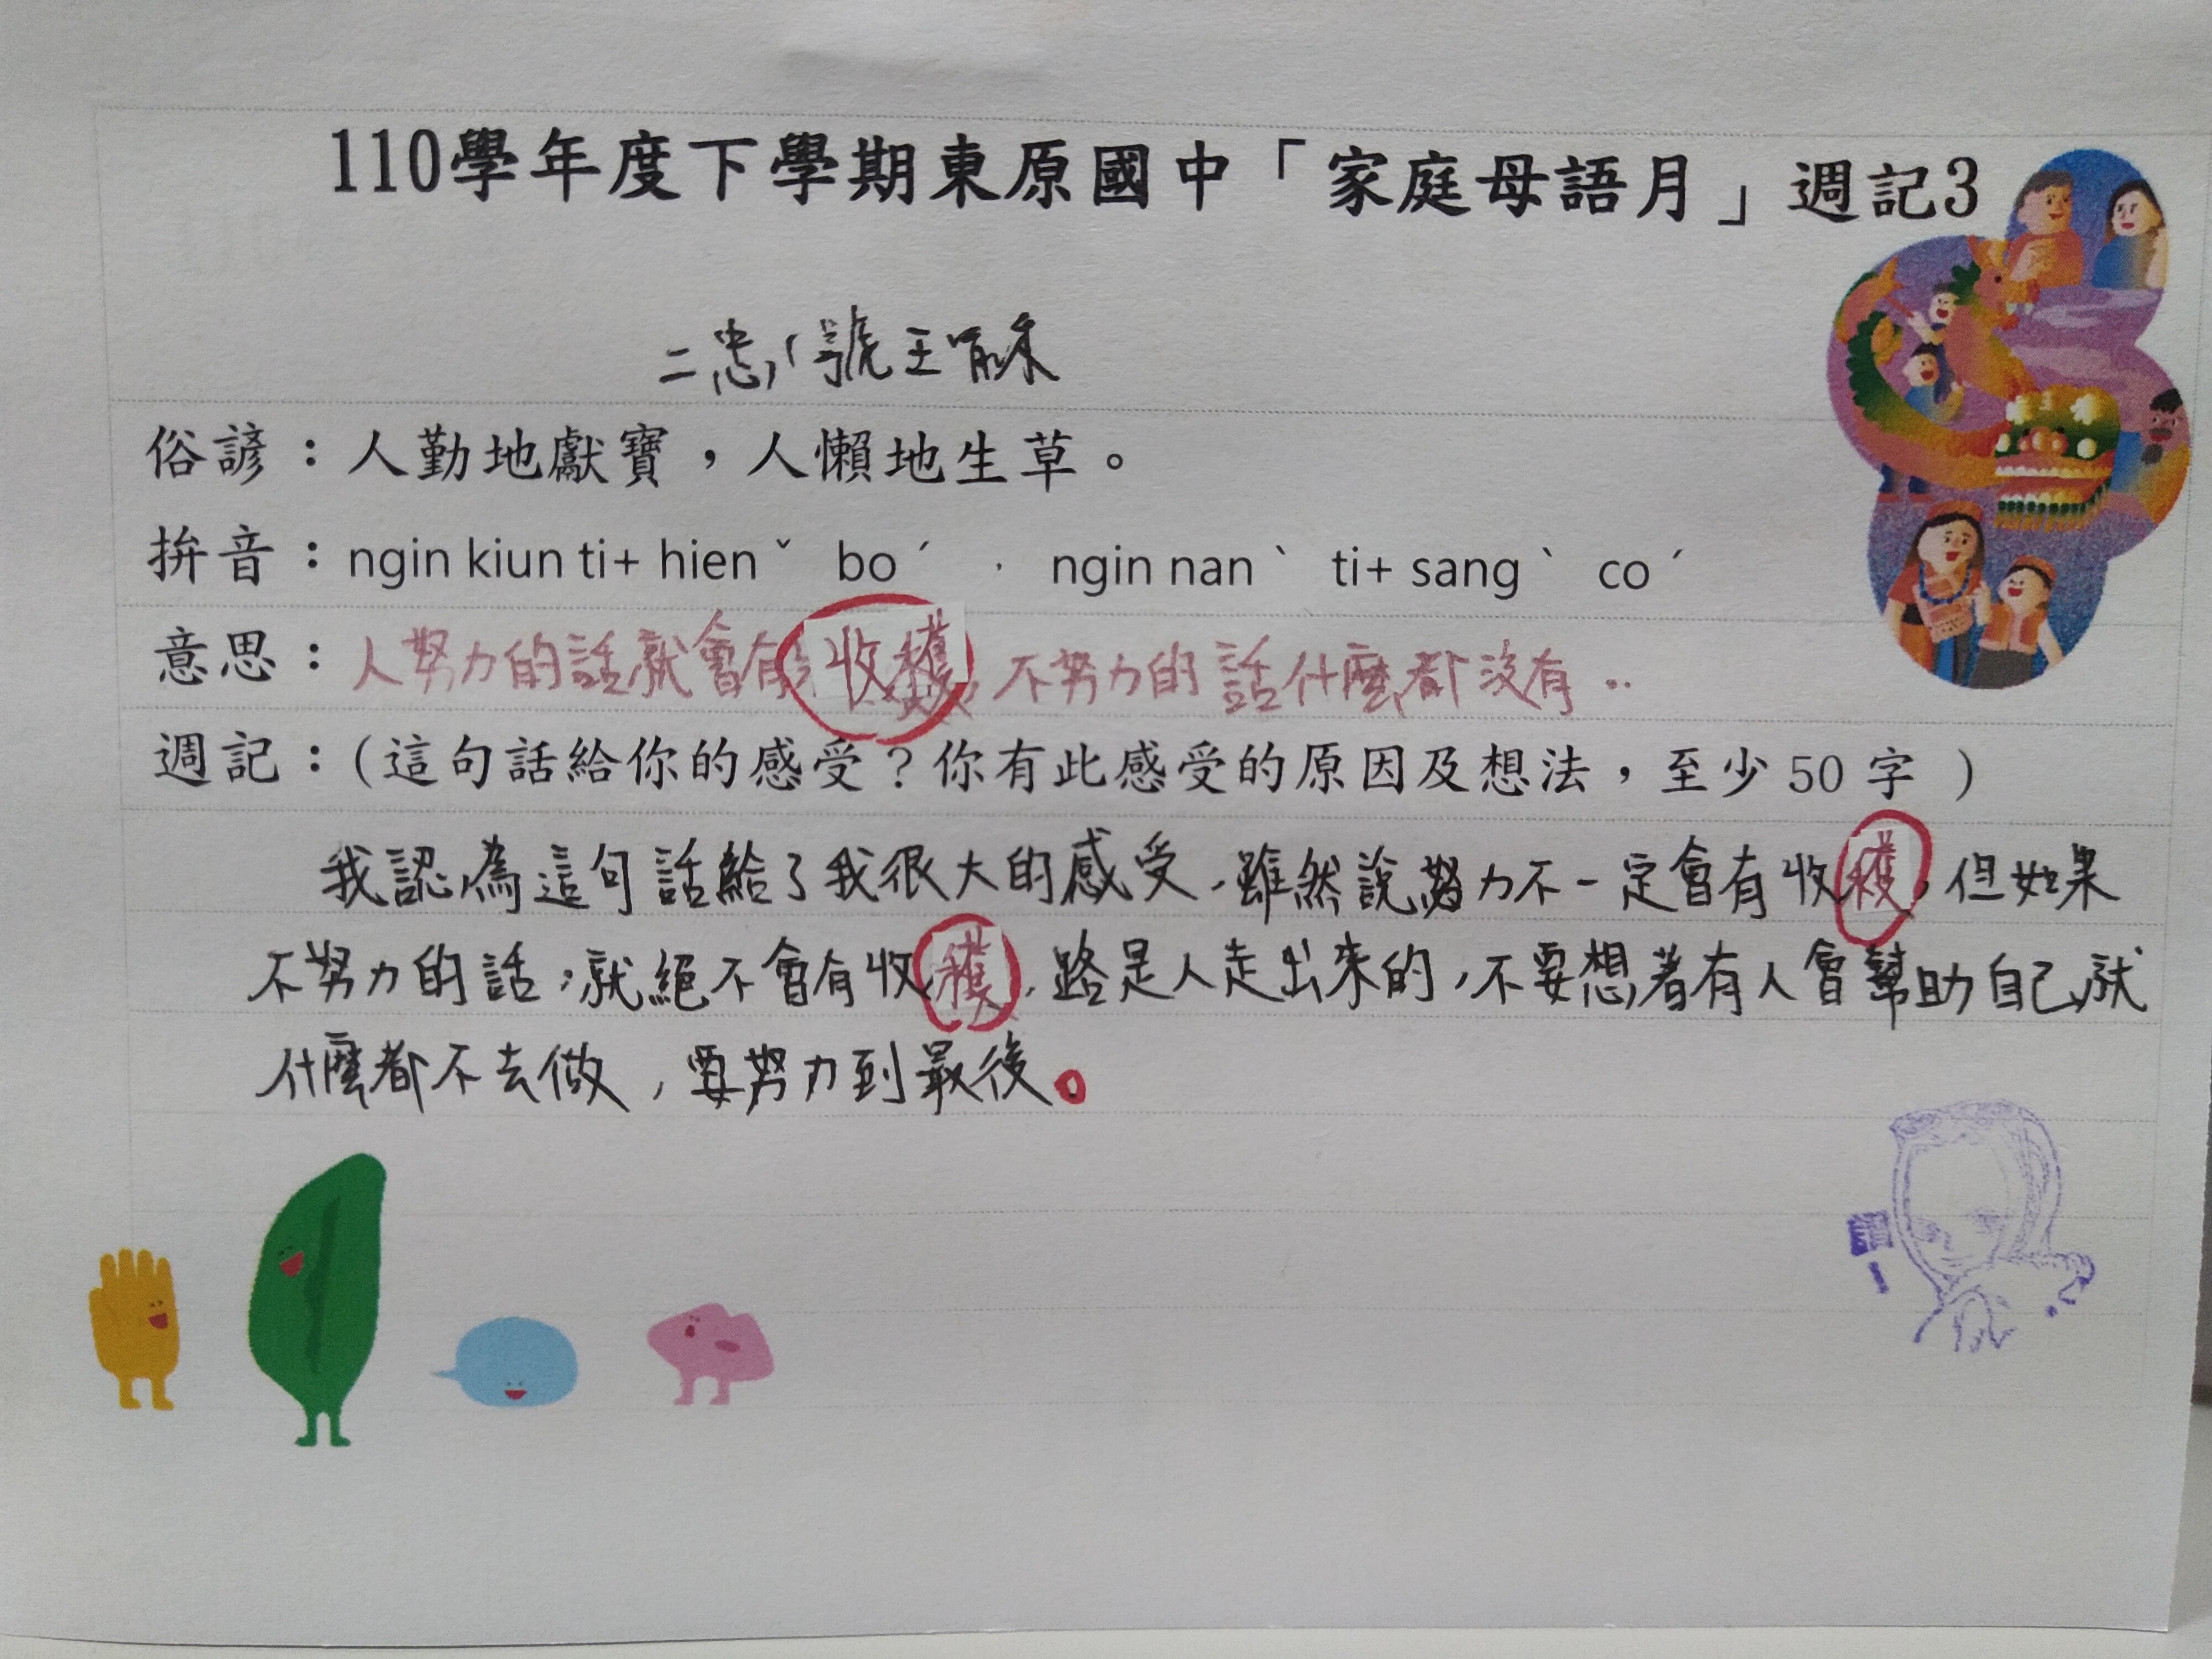 110學年度下學期東原國中「家庭母語月」週記3
二忠1號王
俗諺：人勤地獻寶，人懶地生草。
拚音：ngin kiun ti+ hienˇ boˊ ， ngin nanˋ ti+ sangˋ coˊ
意思：人努力的話就會有收穫，不努力的話什麼都沒有..
週記：(這句話給你的感受？你有此感受的原因及想法，至少50字 )
我認為這句話給了我很大的感受，雖然說努力不一定會有收穫，但如果
不努力的話，就絕不會有收穫，路是人走出來的，不要想著有人會幫助自己就
什麼都不去做，要努力到最後。
讚！